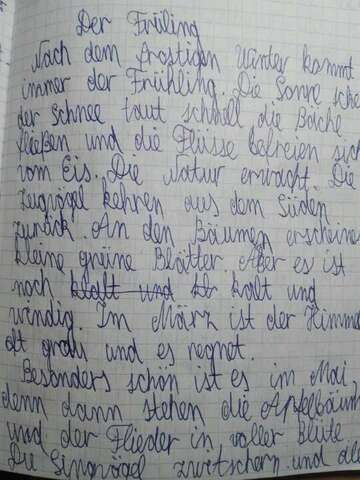 Der Früling
Nach dem frostigen Winter kommt
immer der Frühling. Die Sonne sche
der Schnee taut schnell die Bäche
fließen und die Flüsse befreien sich
vom Eis. Die Natur erwacht. Die
Zugvögel kehren aus dem Süden
zurück. An den Bäumen erscheine
kleine grüne Blätter Aber es ist
noch kalt und
windig. Im März ist der Himme
oft grau und es regnet.
Besonders schön ist es im Mai,
denn dann stehen die Apfelbäum
und der Flieder in voller Blüte
Die Singvögel zwitschern und alle